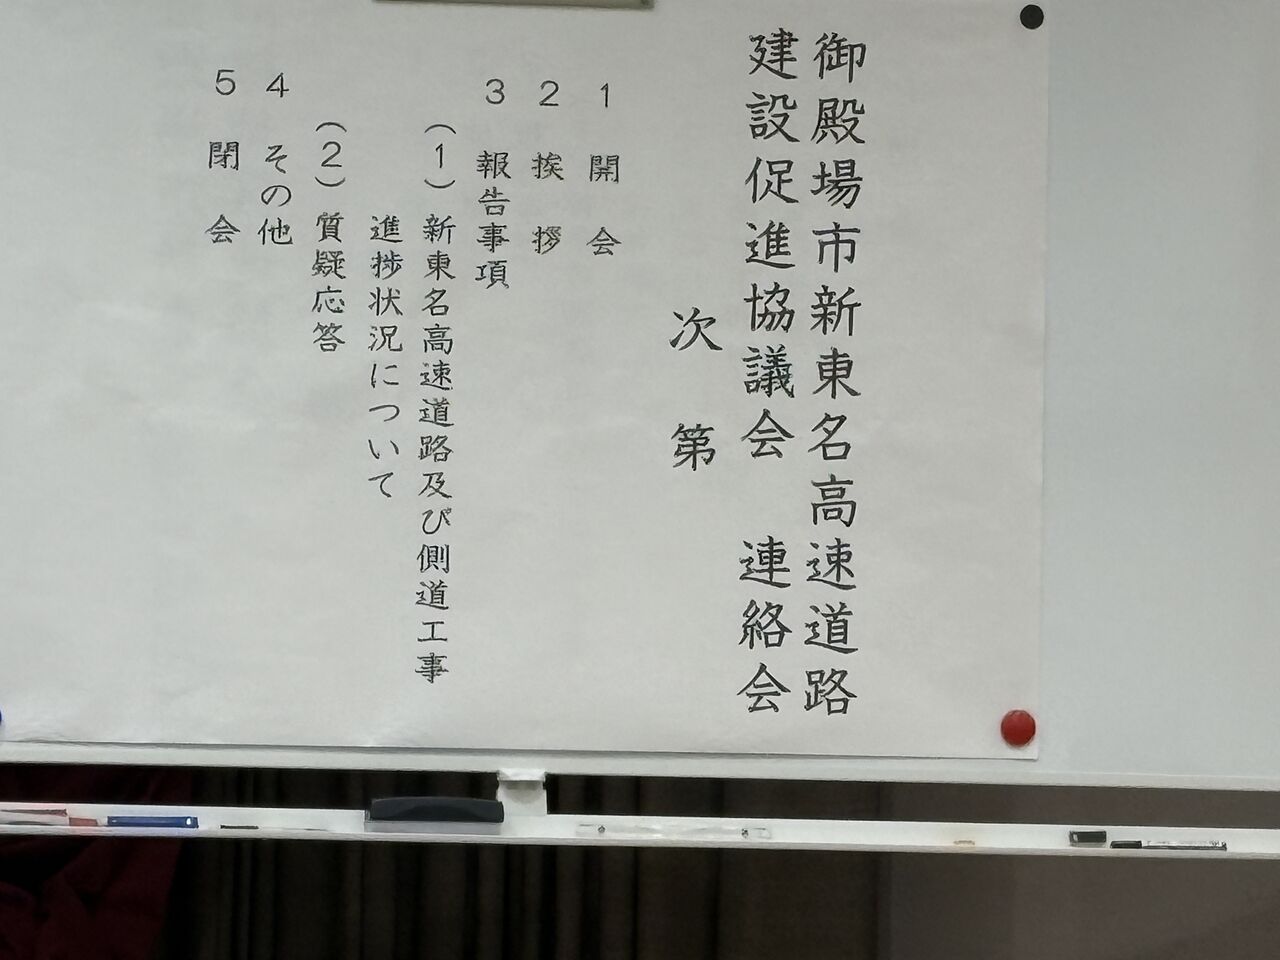 御殿場市新東名高速道路
建設促進協議会 連絡会
次第
1 開会
2 挨拶
3 報告事項
(1) 新東名高速道路及び側道工事
進捗状況について
(2) 質疑応答
4 その他
5 閉会